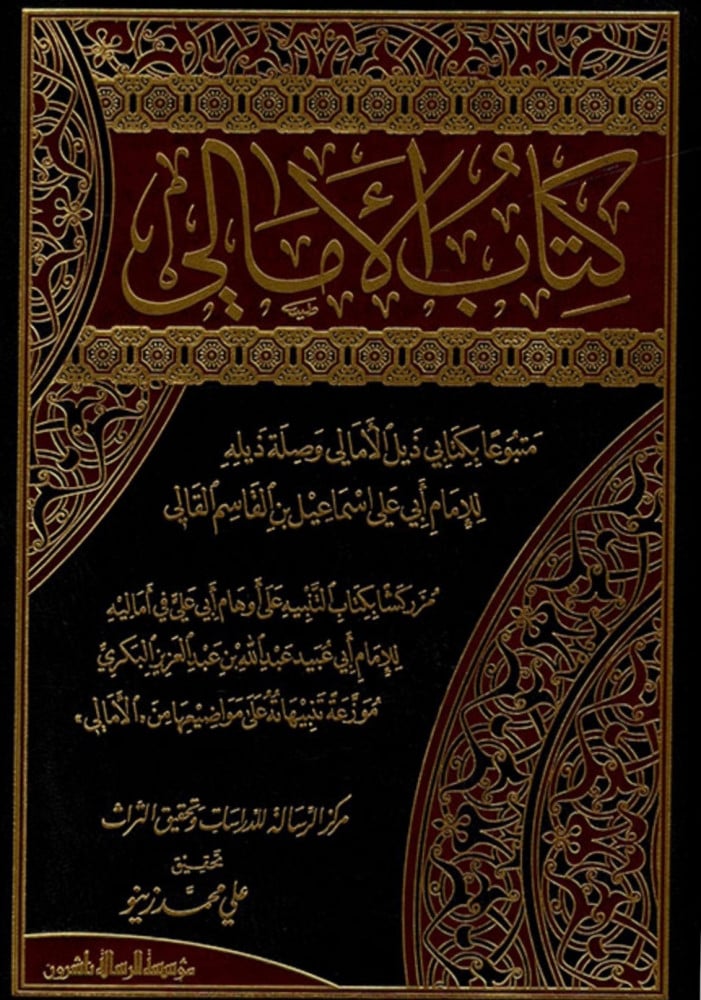 كِتَابُ الأَمَالِي
مَتبُوعًا بِكِتَابَي ذَيلِ الأَمَالي وَصِلَة ذَيلِهِ
لِلإِمَامِ أَبِي عَلي إسْمَاعِيْل بنِ القَاسِمِ القَالِي
مُزَركَشًا بِكِتَابِ التَّنْبِيهِ عَلَى أَوهَام أَبي عَليٍّ في أَمَالِيْهِ
لِلإمَامِ أَبي عُبَيد عَبْدِ اللهِ بْنِ عَبْدِ العَزِيزِ البَكريِّ
مُوَزَّعَةً تَنْبِيْهَاتُهُ عَلَى مَوَاضِيْعِهَا مِنَ «الأَمَالِي»
مركز الرسالة للدراسات وتحقيق التراث
تحقيق
علي محمَّد زينو
مؤسسة الرسالة ناشرون